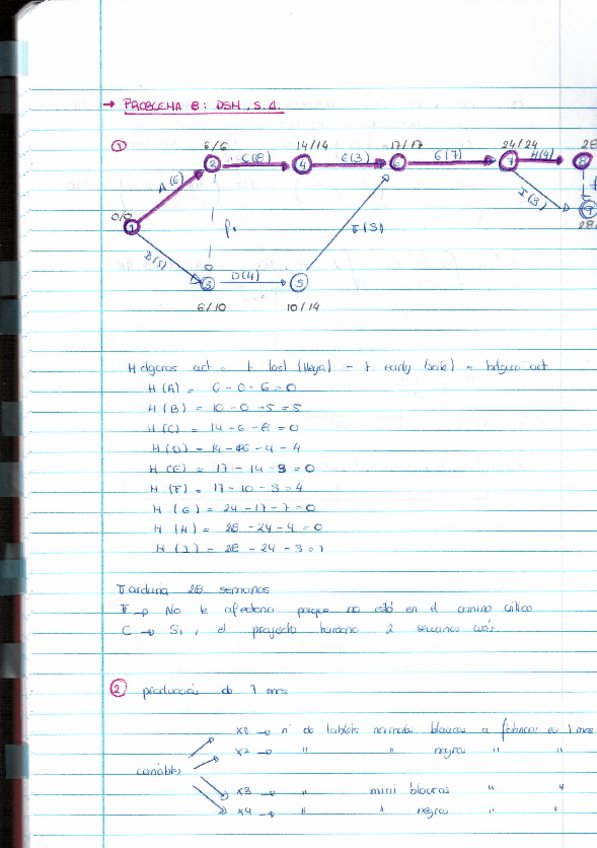 → PROBLEMA 8: DSM, S.A.
①
6/6 14/14 17/17 24/24 28
A(6) C(8) E(3) G(7) H(4)
2 4 6 7 8
0/0 1 f1 F(3) I(3) 9
B(5) 3 D(4) 5 28
6/10 10/14
Holguras act = t last (llega) - t early (sale) - holgura act.
H(A) = 0-0-6=0
H(B) = 10-0-5=5
H(C) = 14-6-8=0
H(D) = 14-6-4=4
H(E) = 17-14-3=0
H(F) = 17-10-3=4
H(G) = 24-17-7=0
H(H) = 28-24-4=0
H(I) = 28-24-3=1
Tardaría 28 semanas
F → No le afectaría porque no está en el camino crítico
C → Sí, el proyecto tardaría 2 semanas más.
② producción de 1 mes
X1 → nº de tablets normales blancas a fabricar en 1 mes
X2 → " " negras " "
variables
X3 → " mini blancas " "
X4 → " " negras " "